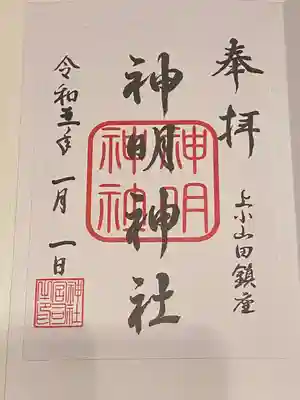 奉拝
上小山田鎮座
神明神社
神明
神社
令和五年
一月一日
神社
宮司
之印